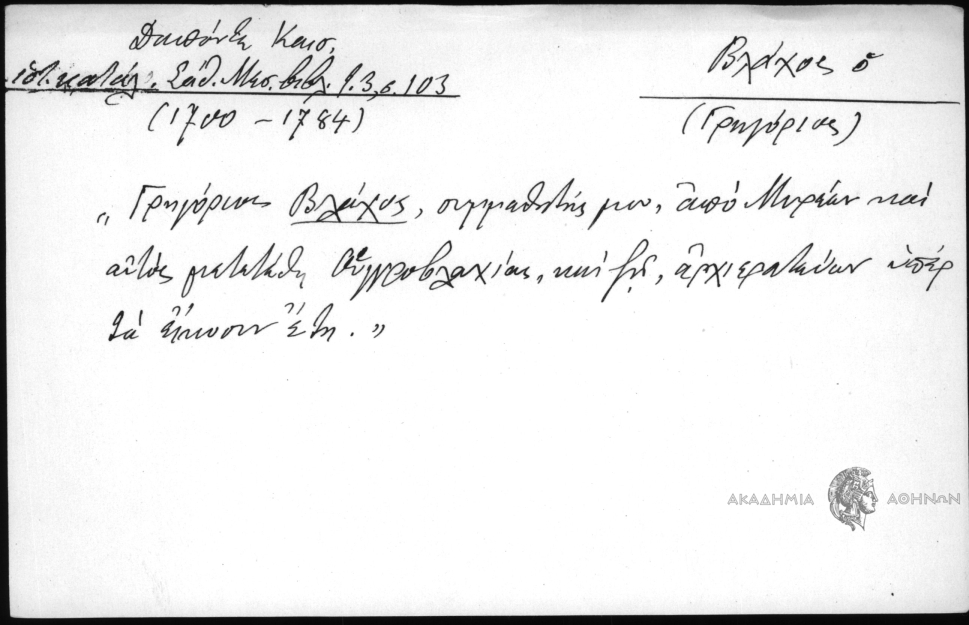 Δαπόντε Καισ.
ἱστ. κατάλ. Σάθ. Μεσ. βιβλ. τ. 3, σ. 103
(1700 – 1784)
Βλάχος ὁ
(Γρηγόριος)
„Γρηγόριος Βλάχος, συμμαθητής μου, ἀπό Μυρέων καί
αὐτός μετετέθη Οὐγγροβλαχίας, καί ζῇ, ἀρχιερατεύων ὑπέρ
τά εἴκοσιν ἔτη.”
ΑΚΑΔΗΜΙΑ ΑΘΗΝΩΝ